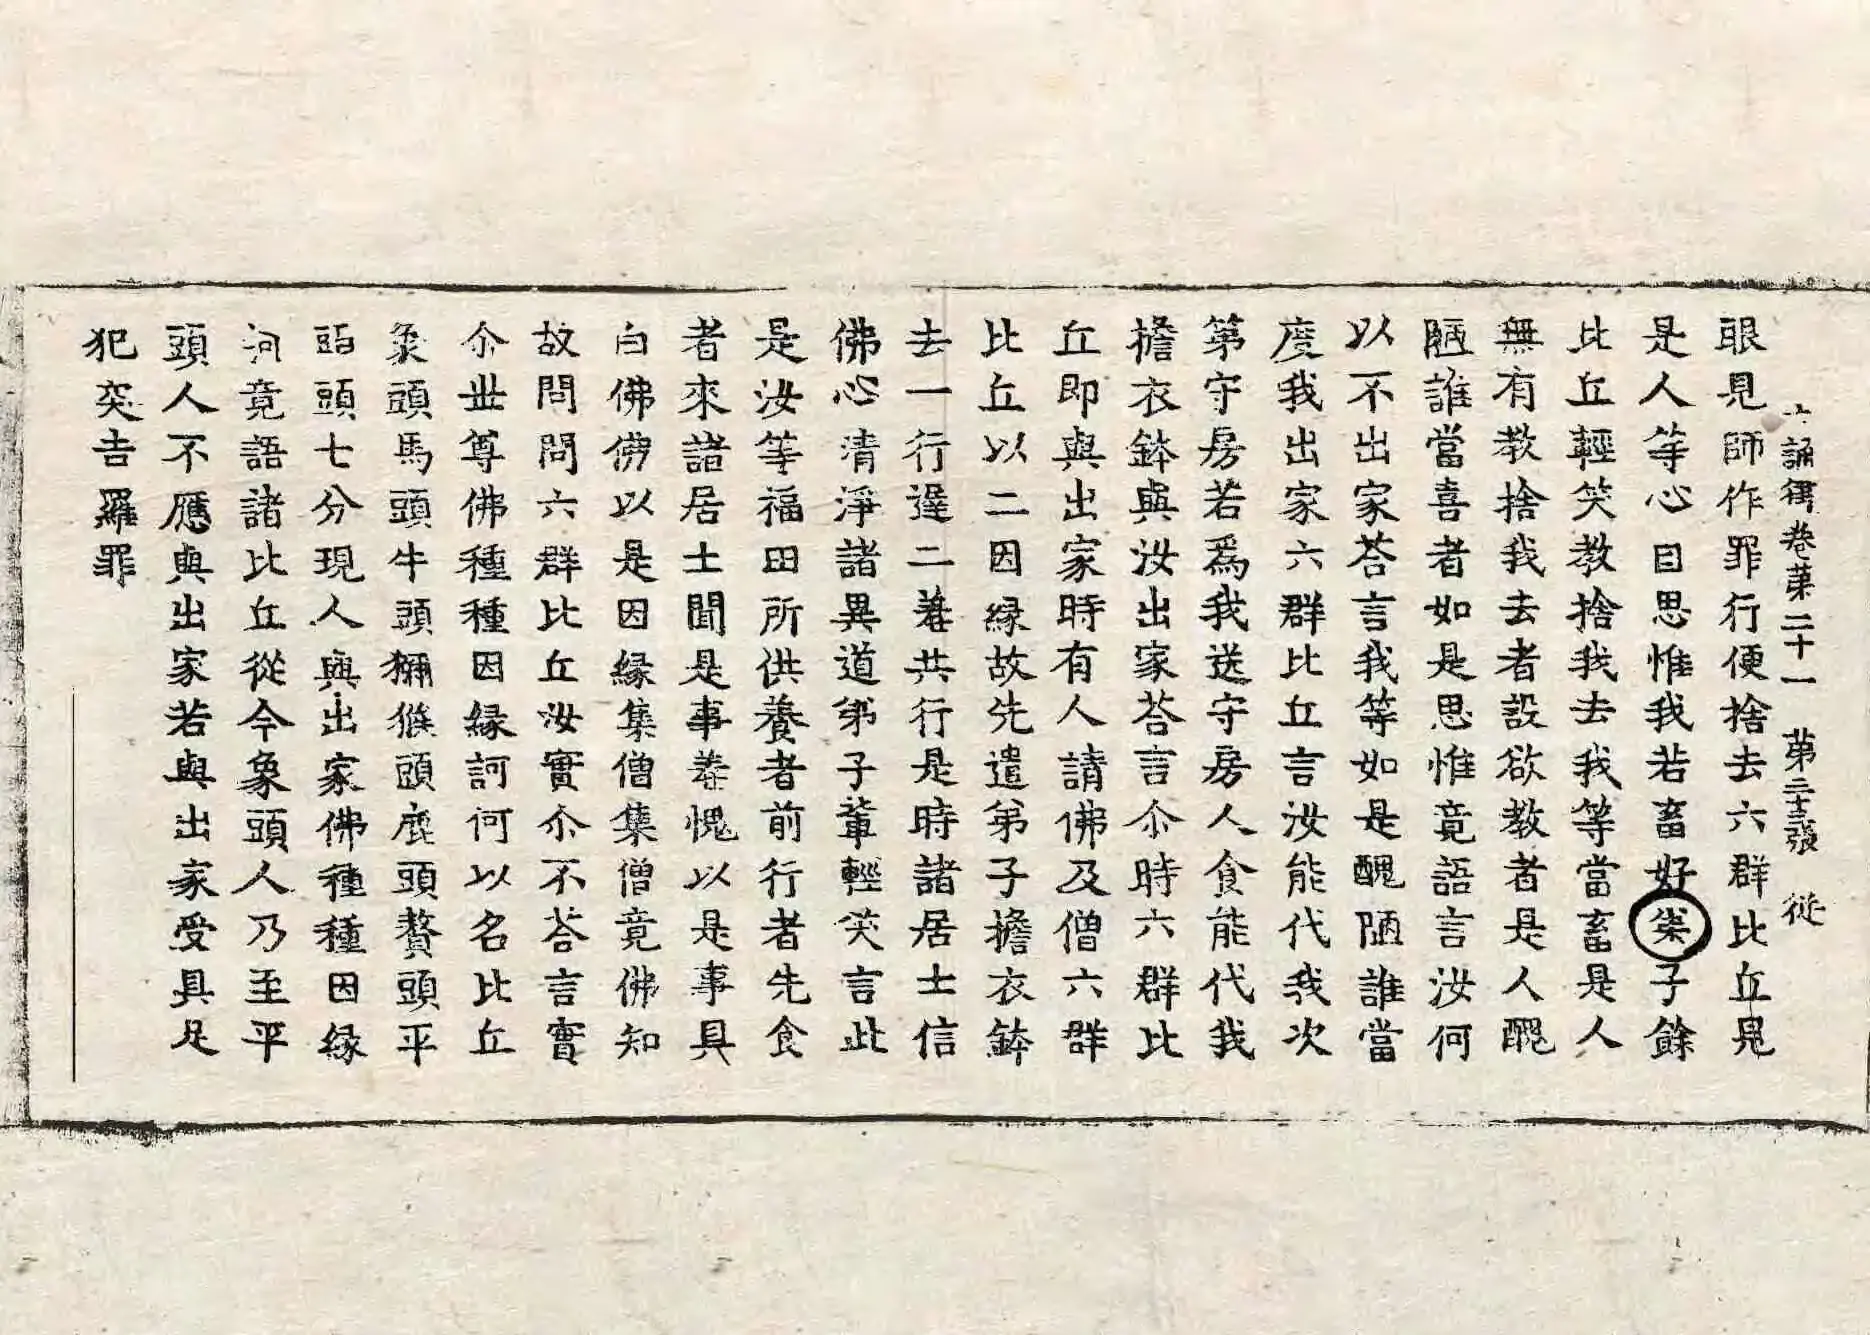 十誦律卷苐二十一 苐二十三張 從
眼見師作罪行便捨去六群比丘見
是人等心目思惟我若畜好㭰子餘
比丘輕笑教捨我去我等當畜是人
無有教捨我去者設欲教者是人醜
陋誰當喜者如是思惟竟語言汝何
以不出家荅言我等如是醜陋誰當
度我出家六群比丘言汝能代我次
第守房若爲我送守房人食能代我
擔衣鉢與汝出家荅言尒時六群比
丘即與出家時有人請佛及僧六群
比丘以二因緣故先遣弟子擔衣鉢
去一行逹二巷共行是時諸居士信
佛心清淨諸異道弟子輩輕笑言此
是汝等福田所供養者前行者先食
者來諸居士聞是事羞愧以是事具
白佛佛以是因緣集僧集僧竟佛知
故問問六群比丘汝實尒不荅言實
尒世尊佛種種因緣訶何以名比丘
象頭馬頭牛頭獼猴頭鹿頭贅頭平
頭頭七分現人與出家佛種種因緣
訶竟語諸比丘從今象頭人乃至平
頭人不應與出家若與出家受具足
犯突吉羅罪